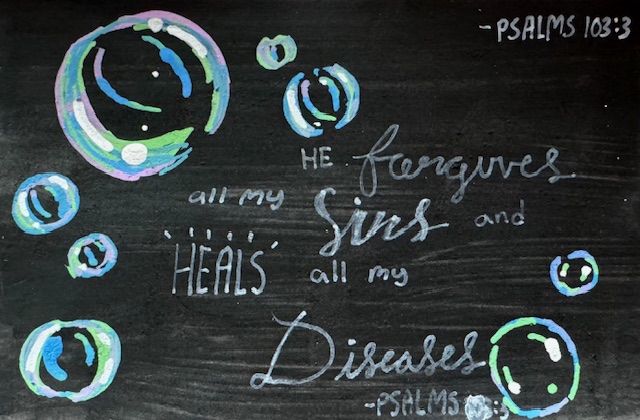 -PSALMS 103:3
HE forgives
all my Sins and
'HEALS' all my
Diseases
-PSALMS 103:3